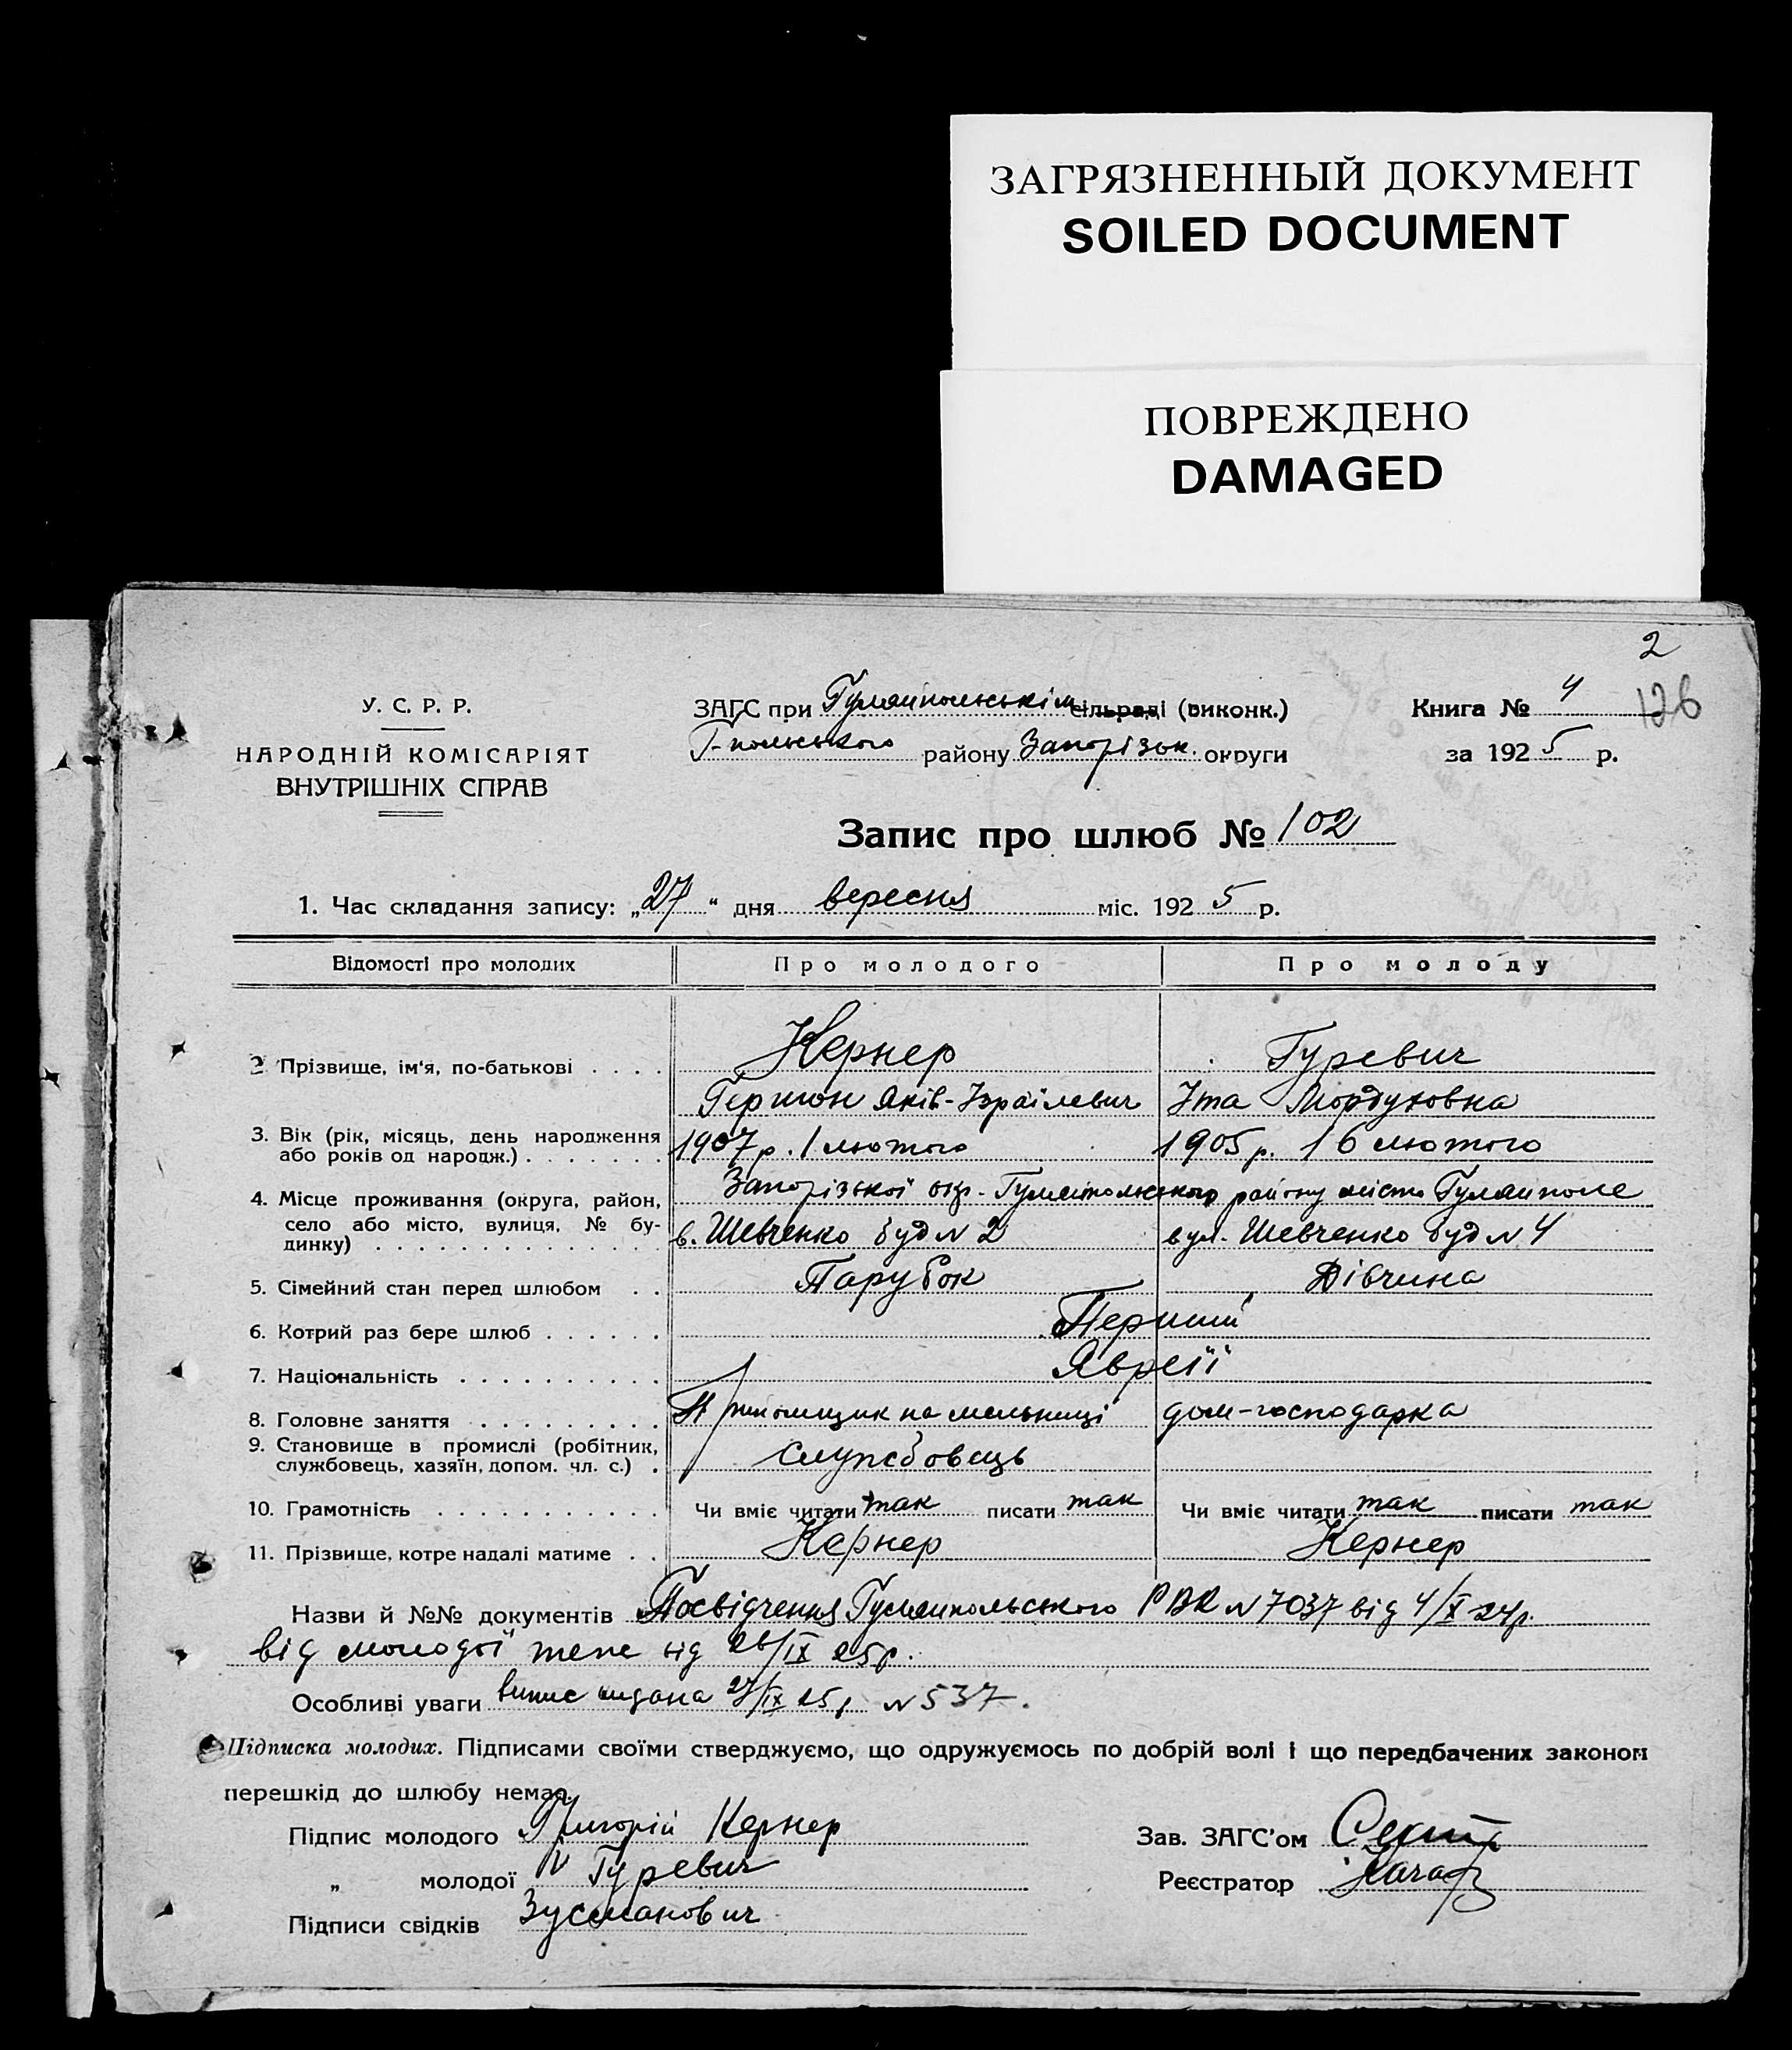 ЗАГРЯЗНЕННЫЙ ДОКУМЕНТ
SOILED DOCUMENT
ПОВРЕЖДЕНО
DAMAGED
2
126
У. С. Р. Р.
НАРОДНІЙ КОМІСАРІЯТ
ВНУТРІШНІХ СПРАВ
ЗАГС при Гуляйпольськім сільраді (виконк.)
Г-польського району Запорізьк. округи
Книга № 4
за 1925 р.
Запис про шлюб № 102
1. Час складання запису: „27“ дня вересня міс. 1925 р.
Відомості про молодих Про молодого Про молоду
2. Прізвище, ім'я, по-батькові . . . . Кернер Гуревич
Гершон Яків-Ізраїлевич Іта Мордуховна
3. Вік (рік, місяць, день народження або років од народж.) . . . . . . . 1907 р. 1 лютого 1905 р. 16 лютого
4. Місце проживання (округа, район, Запорізької окр. Гуляйпольського району місто Гуляйполе
село або місто, вулиця, № будинку) . . . . . . . . . . . . . . в. Шевченко буд N 2 вул. Шевченко буд N 4
5. Сімейний стан перед шлюбом . . Парубок Дівчина
6. Котрий раз бере шлюб . . . . . . Перший
7. Національність . . . . . . . . . . Явреї
8. Головне заняття . . . . . . . . . Прийомщик на мельниці дом-господарка
9. Становище в промислі (робітник, службовець, хазяїн, допом. чл. с.) . службовець
10. Грамотність . . . . . . . . . . . Чи вміє читати так писати так Чи вміє читати так писати так
11. Прізвище, котре надалі матиме . . Кернер Кернер
Назви й №№ документів Посвідчення Гуляйпольського РВК N 7037 від 4/X 24р.
від молодої теж від 26/IX 25р.
Особливі уваги випис видана 27/IX 25р N 537.
Підписка молодих. Підписами своїми стверджуємо, що одружуємось по добрій волі і що передбачених законом
перешкід до шлюбу немає.
Підпис молодого Григорій Кернер
„ молодої Гуревич
Підписи свідків Зусманович
Зав. ЗАГС'ом
Реєстратор